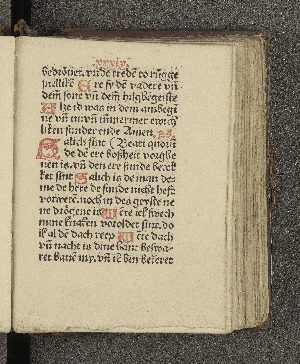 bedrouet. vnde trede to rugge
snellikē Ere sy dē vadere vn̄
dem̄ sone vn̄ dem̄ hilgēgeiste
Alze id was in dem anbegī
ne vn̄ nu vn̄ ummermer ewich
liken sunder ende Amen. ps.
Salich sint (Beati quorū
de dē ere boszheit vorgeue
nen is. vn̄ den ere sunde bedek
ket sint Salich is de man de
me de here de sunde nicht hefft
vorweten. noch in des geyste ne
ne drogene is
mine knaken vorolden sint. do
ik al dē dach reep
vn̄ nacht is dine hant beswa
ret bauē my. vn̄ ik bin bekeret